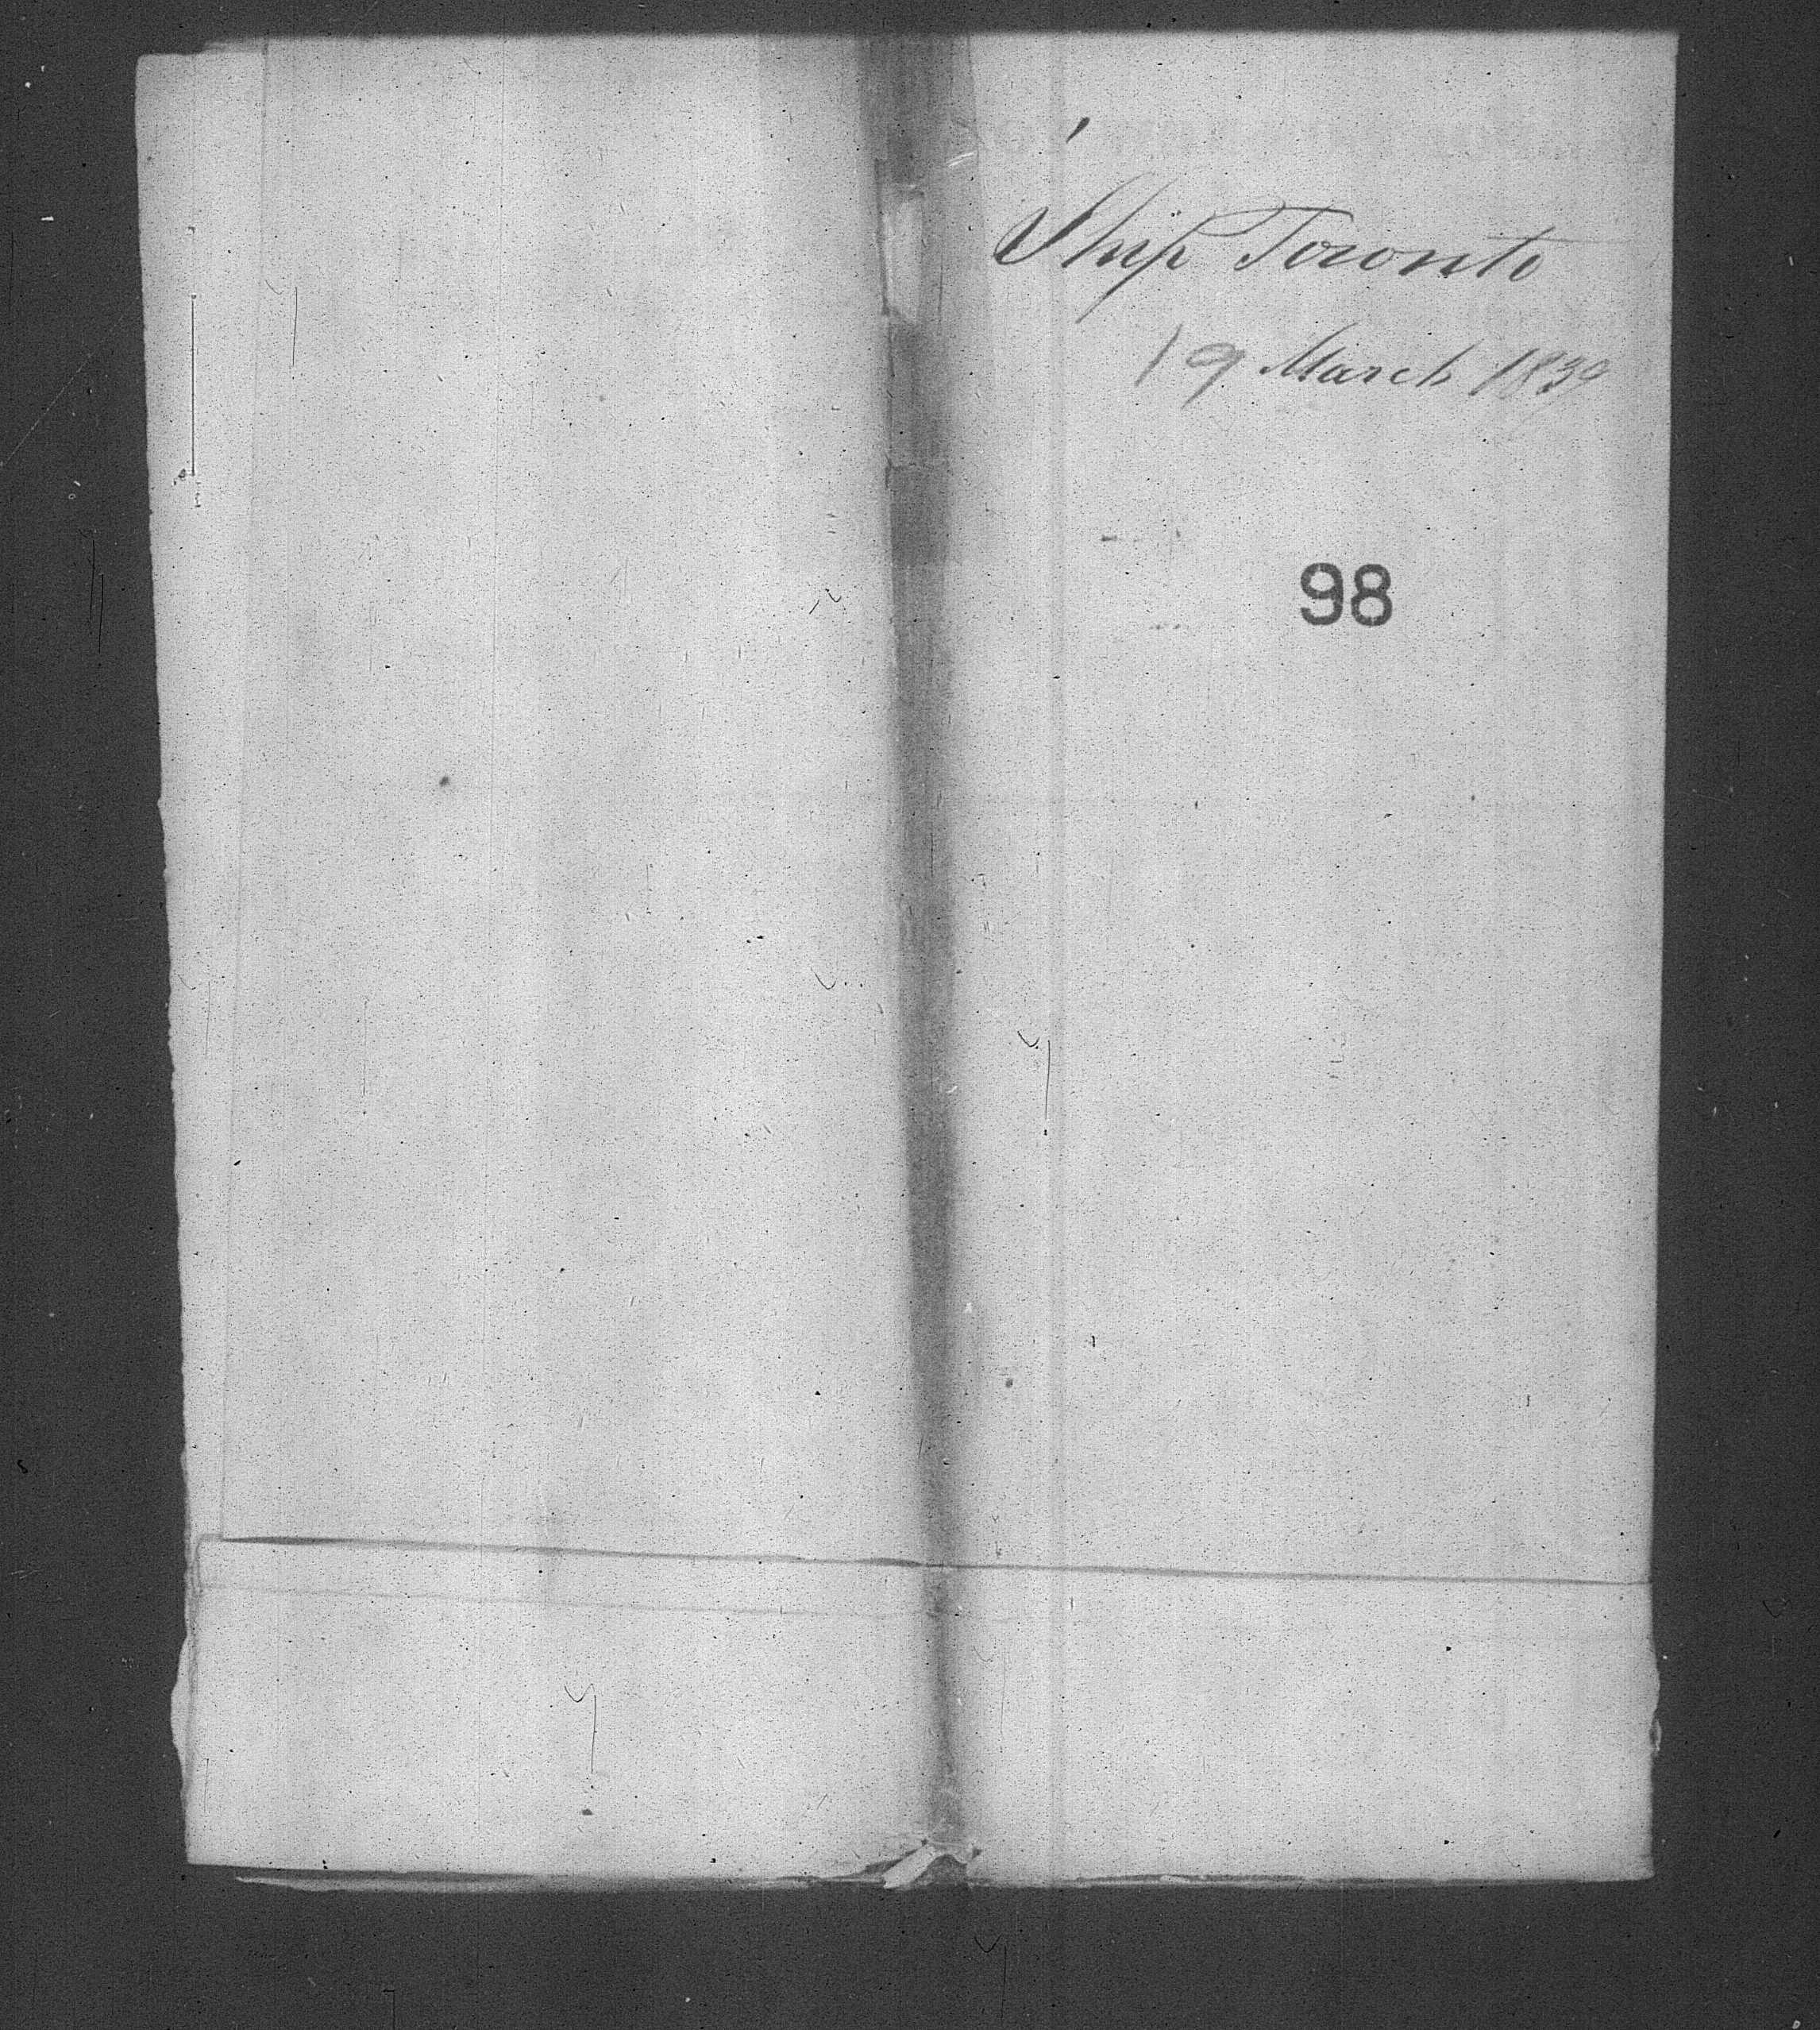 Ship Toronto
19 March 1839
98